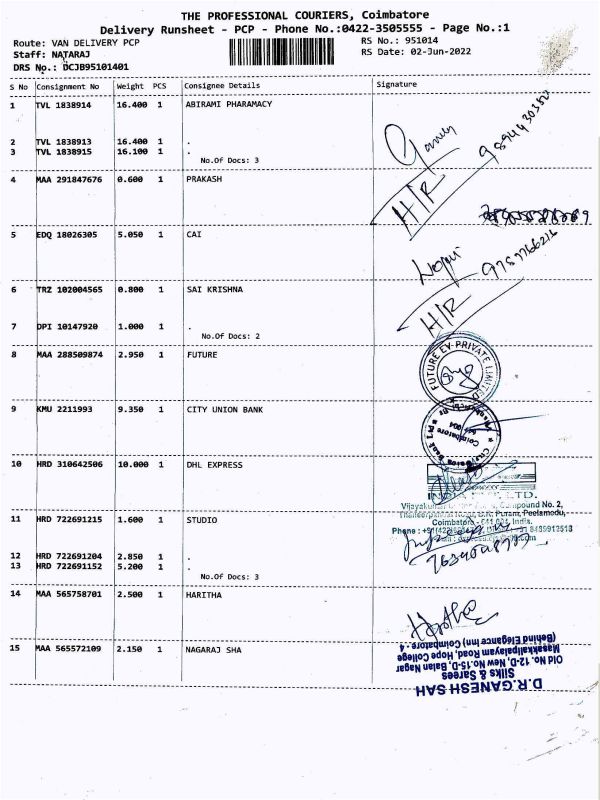 THE PROFESSIONAL COURIERS, Coimbatore
Delivery Runsheet - PCP - Phone No.:0422-3505555 - Page No.:1
Route: VAN DELIVERY PCP RS No.: 951014
Staff: NATARAJ RS Date: 02-Jun-2022
DRS No.: DCJB95101401
S No Consignment No Weight PCS Consignee Details Signature
1 TVL 1838914 16.400 1 ABIRAMI PHARAMACY
2 TVL 1838913 16.400 1 .
3 TVL 1838915 16.100 1 .
No.Of Docs: 3
H/R
4 MAA 291847676 0.600 1 PRAKASH
5 EDQ 18026305 5.050 1 CAI
9787766216
6 TRZ 102004565 0.800 1 SAI KRISHNA
H/R
7 DPI 10147920 1.000 1 .
No.Of Docs: 2
8 MAA 288509874 2.950 1 FUTURE
FUTURE EV PRIVATE LIMITED
9 KMU 2211993 9.350 1 CITY UNION BANK
Coimbatore
641 004
10 HRD 310642506 10.000 1 DHL EXPRESS
Compound No. 2,
Puram, Peelamedu,
Coimbatore - 641 004, India.
11 HRD 722691215 1.600 1 STUDIO
12 HRD 722691204 2.850 1 .
13 HRD 722691152 5.200 1 .
No.Of Docs: 3
14 MAA 565758701 2.500 1 HARITHA
Haritha
15 MAA 565572109 2.150 1 NAGARAJ SHA
D.R.GANESH SAH
Silks & Sarees
Old No. 12-D, New No.15-D, Balan Nagar
Masakkalipalayam Road, Hope College
(Behind Elegance Inn) Coimbatore - 4